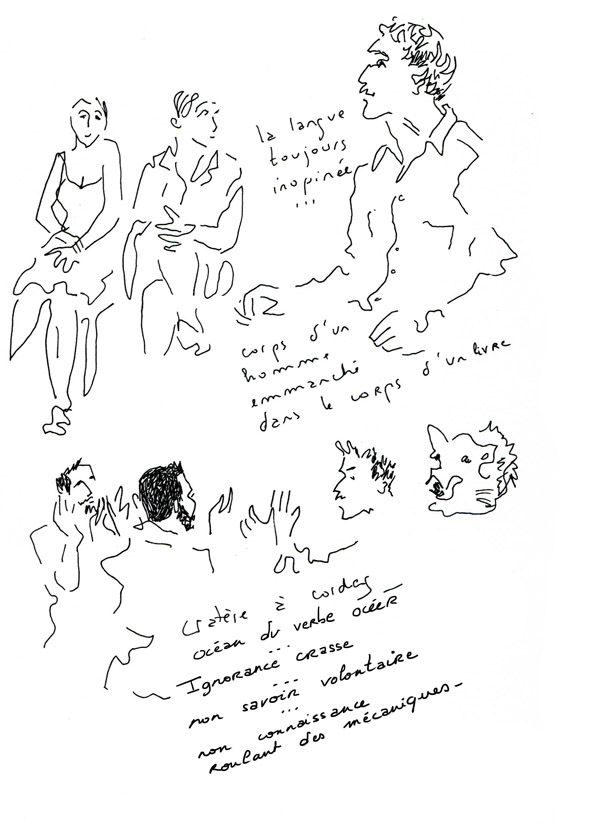 la langue
toujours
inopinée
...
corps d'un
homme
emmanché
dans le corps d'un livre
cratère à cordes
océan du verbe océer
...
Ignorance crasse
...
non savoir volontaire
...
non connaissance
roulant des mécaniques-